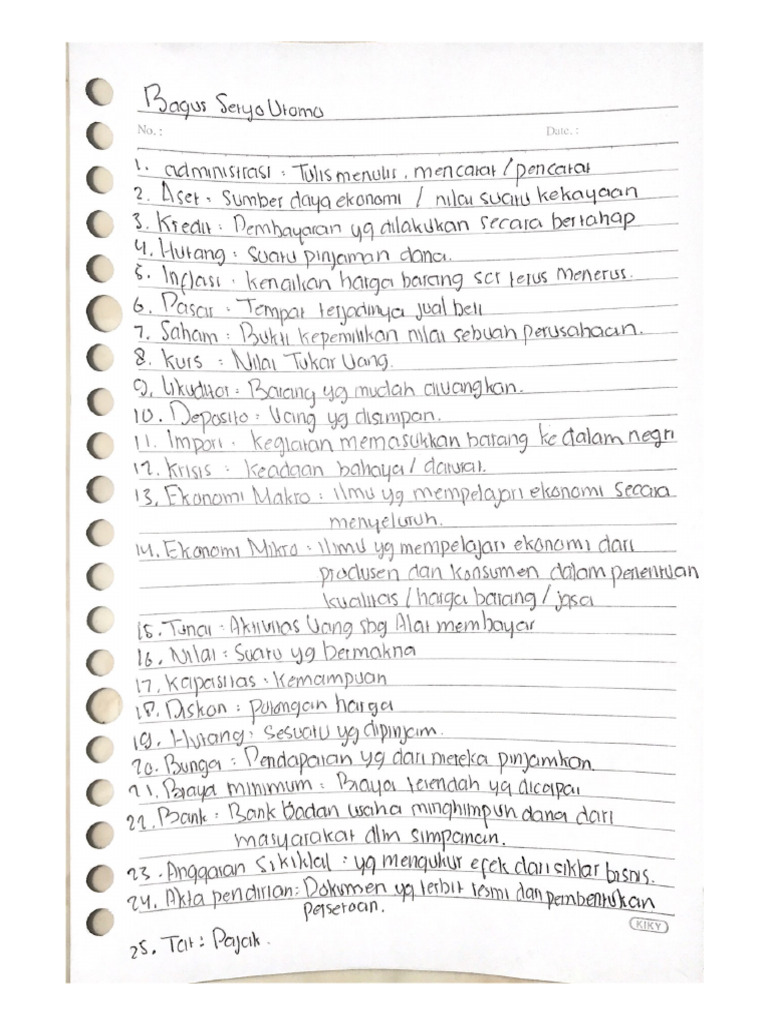 Bagus Setyo Utomo
No. :
Date. :
1. administrasi : Tulis menulis, mencatat / pencatat
2. Aset : Sumber daya ekonomi / nilai suatu kekayaan
3. Kredit : Pembayaran yg dilakukan secara bertahap
4. Hutang : Suatu pinjaman dana.
5. Inflasi : kenaikan harga barang scr terus menerus.
6. Pasar : Tempat terjadinya jual beli
7. Saham : Bukti kepemilikan nilai sebuah perusahaan.
8. Kurs : Nilai Tukar Uang.
9. Likuditor : Barang yg mudah diuangkan.
10. Deposito : Uang yg disimpan.
11. Impori : kegiatan memasukkan barang ke dalam negri
12. Krisis : keadaan bahaya / darurat.
13. Ekonomi Makro : ilmu yg mempelajari ekonomi secara
menyeluruh.
14. Ekonomi Mikro : ilmu yg mempelajari ekonomi dari
produsen dan konsumen dalam penentuan
kualitas / harga barang / jasa
15. Tunai : Aktivitas Uang sbg Alat membayar
16. Nilai : Suatu yg bermakna
17. Kapasitas : Kemampuan
18. Diskon : potongan harga
19. Hutang : Sesuatu yg dipinjam.
20. Bunga : Pendapatan yg dari mereka pinjamkan.
21. Biaya minimum : Biaya terendah yg dicapai
22. Bank : Bank badan usaha minghimpun dana dari
masyarakat dlm simpanan.
23. Anggaran Sikiklal : yg mengukur efek dari siklar bisnis.
24. Akta pendirian : Dokumen yg terbit resmi dan pembentukan
perseroan.
25. Tat : Pajak.
KIKY